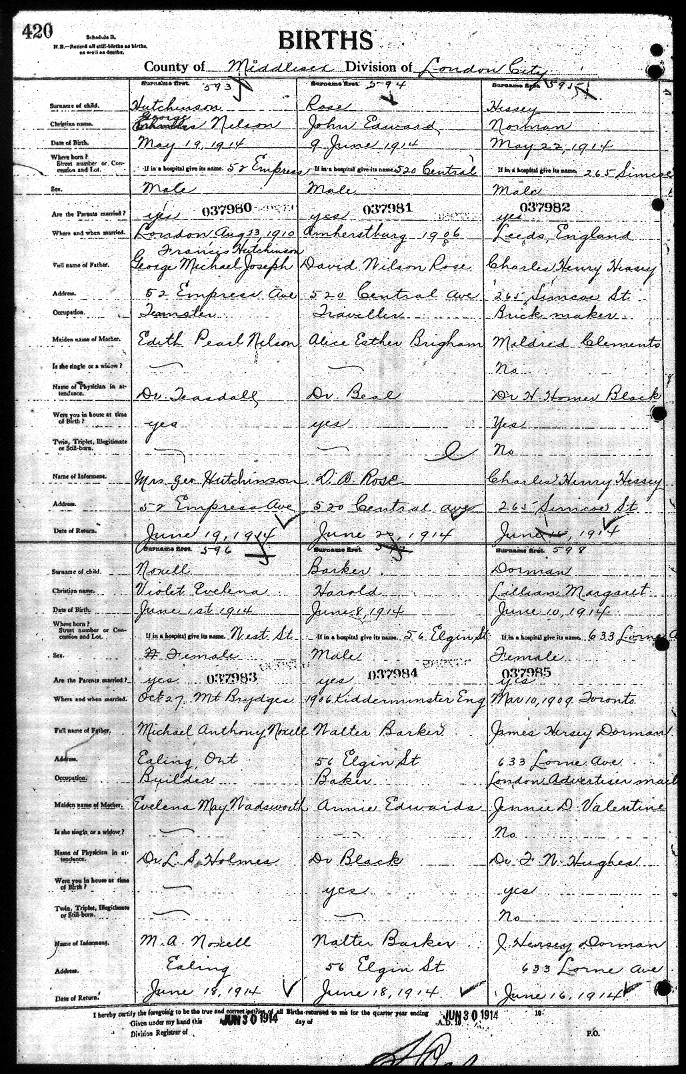 420
Schedule B.
N.B.—Record all still-births as births, as well as deaths.
BIRTHS
County of Middlesex Division of London City
Surname first. 593 Surname first. 594 Surname first. 595
Surname of child. Hutchinson Rose Hessey
George
Christian name. Nelson John Edward Norman
Date of Birth. May 19, 1914 9 June, 1914 May 22, 1914
Where born? Street number or Concession and Lot. If in a hospital give its name. 52 Empress If in a hospital give its name. 520 Central If in a hospital give its name. 265 Simcoe
Sex. Male Male Male
Are the Parents married? yes 037980 yes 037981 yes 037982
Where and when married. London Aug 23, 1910 Amherstburg 1906 Leeds, England
Francis Hutchinson
Full name of Father. George Michael Joseph David Wilson Rose Charles Henry Hessey
Address. 52 Empress Ave 520 Central Ave 265 Simcoe St.
Occupation. Teamster Traveller Brick maker
Maiden name of Mother. Edith Pearl Nelson Alice Esther Brigham Mildred Clements
Is she single or a widow? — — No
Name of Physician in attendence. Dr. Teasdall Dr. Beal Dr H. Homer Black
Were you in house at time of Birth? yes yes Yes
Twin, Triplet, Illegitimate or Still-born. — — No
Name of Informant. Mrs. Geo Hutchinson D. W. Rose Charles Henry Hessey
Address. 52 Empress Ave 520 Central Ave 265 Simcoe St
Date of Return. June 19, 1914 June 1914 June 1914
Surname first. 596 Surname first. Surname first. 598
Surname of child. Noxell Barker Dorman
Christian name. Violet Evelena Harold Lillian Margaret
Date of Birth. June 1st 1914 June 8, 1914 June 10, 1914
Where born? Street number or Concession and Lot. If in a hospital give its name. West St. If in a hospital give its name. 56 Elgin St If in a hospital give its name. 633 Lorne A
Sex. Female Male Female
Are the Parents married? yes 037983 yes 037984 yes 037985
Where and when married. Oct 27, Mt Brydges 1906 Kidderminster Eng Mar 10, 1909 Toronto
Full name of Father. Michael Anthony Noxell Walter Barker James Hersey Dorman
Address. Ealing, Ont 56 Elgin St 633 Lorne Ave
Occupation. Builder Baker London Advertiser mail
Maiden name of Mother. Evelena May Wadsworth Annie Edwards Jennie D. Valentine
Is she single, or a widow? — No
Name of Physician in attendence. Dr L. S. Holmes Dr Black Dr. F. N. Hughes
Were you in house at time of Birth? — yes yes
Twin, Triplet, Illegitimate or Still-born. — — No
Name of Informant. M. A. Noxell Walter Barker J. Hersey Dorman
Address. Ealing 56 Elgin St 633 Lorne Ave
Date of Return. June 19, 1914 June 18, 1914 June 16, 1914
I hereby certify the foregoing to be the true and correct entries of all Births returned to me for the quarter year ending JUN 30 1914 19
Given under my hand this JUN 30 1914 day of A.D. 19
Division Registrar of P.O.